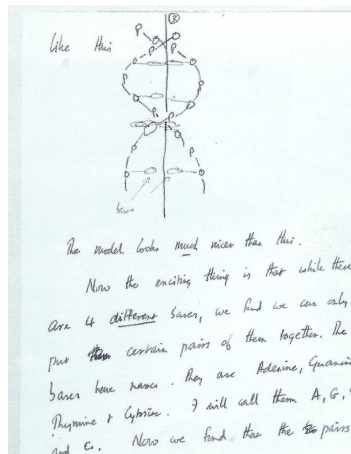 Like this
bases
The model looks much nicer than this.
Now the exciting thing is that while there
are 4 different bases, we find we can only
put certain pairs of them together. The
bases have names. They are Adenine, Guanine
Thymine & Cytosine. I will call them A, G,
and C. Now we find that the pairs